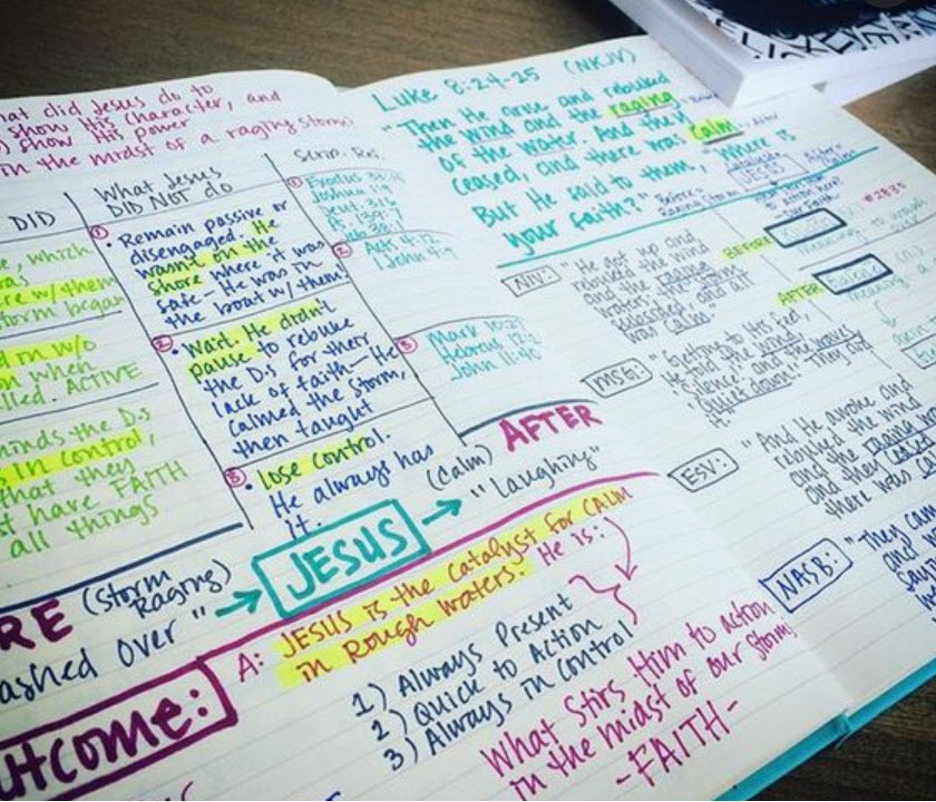 hat did Jesus do to
show His character, and
show His power
in the midst of a raging storm?
DID
What Jesus
DID NOT do
Scrip. Ref.
e, which
as
re w/ them
storm began
d in w/o
on when
lled. ACTIVE
minds the D.s
s in control,
that they
st have FAITH
all things
① • Remain passive or
disengaged. He
wasn't on the
shore where it was
safe- He was in
the boat w/ them
② • Wait. He didn't
pause to rebuke
the D.s for their
lack of faith- He
calmed the storm,
then taught
③ • Lose control.
He always has
it.
① Exodus
Joshua 1:9
Deut. 31:
② Acts 4:12
1 John
③ Mark 10:27
Hebrews 12:2
John 11:40
RE (Storm
Raging)
ashed over" →
JESUS →
AFTER
(Calm)
"laughing"
utcome:
A: JESUS is the catalyst for CALM
in Rough waters! He is:
1) Always Present
2) Quick to Action
3) Always in Control
What Stirs Him to action
in the midst of our storm
-FAITH-
Luke 8:24-25 (NKJV)
"Then He arose and rebuked
the wind and the raging
of the water. And they
ceased, and there was calm
But He said to them, "Where is
your faith?"
Before
Raging Storm
JESUS
After
BEFORE
AFTER
NIV: "He got up and
rebuked the wind
and the raging
waters; the storm
subsided and all
was calm.
MSG: "Getting to His feet,
he told the wind,
'Silence' and the waves
'Quiet down!' They did
it.
ESV: "And He awoke and
rebuked the wind
and the raging wa
and they ceased
there was ca
NASB: "They came
and w
sayi